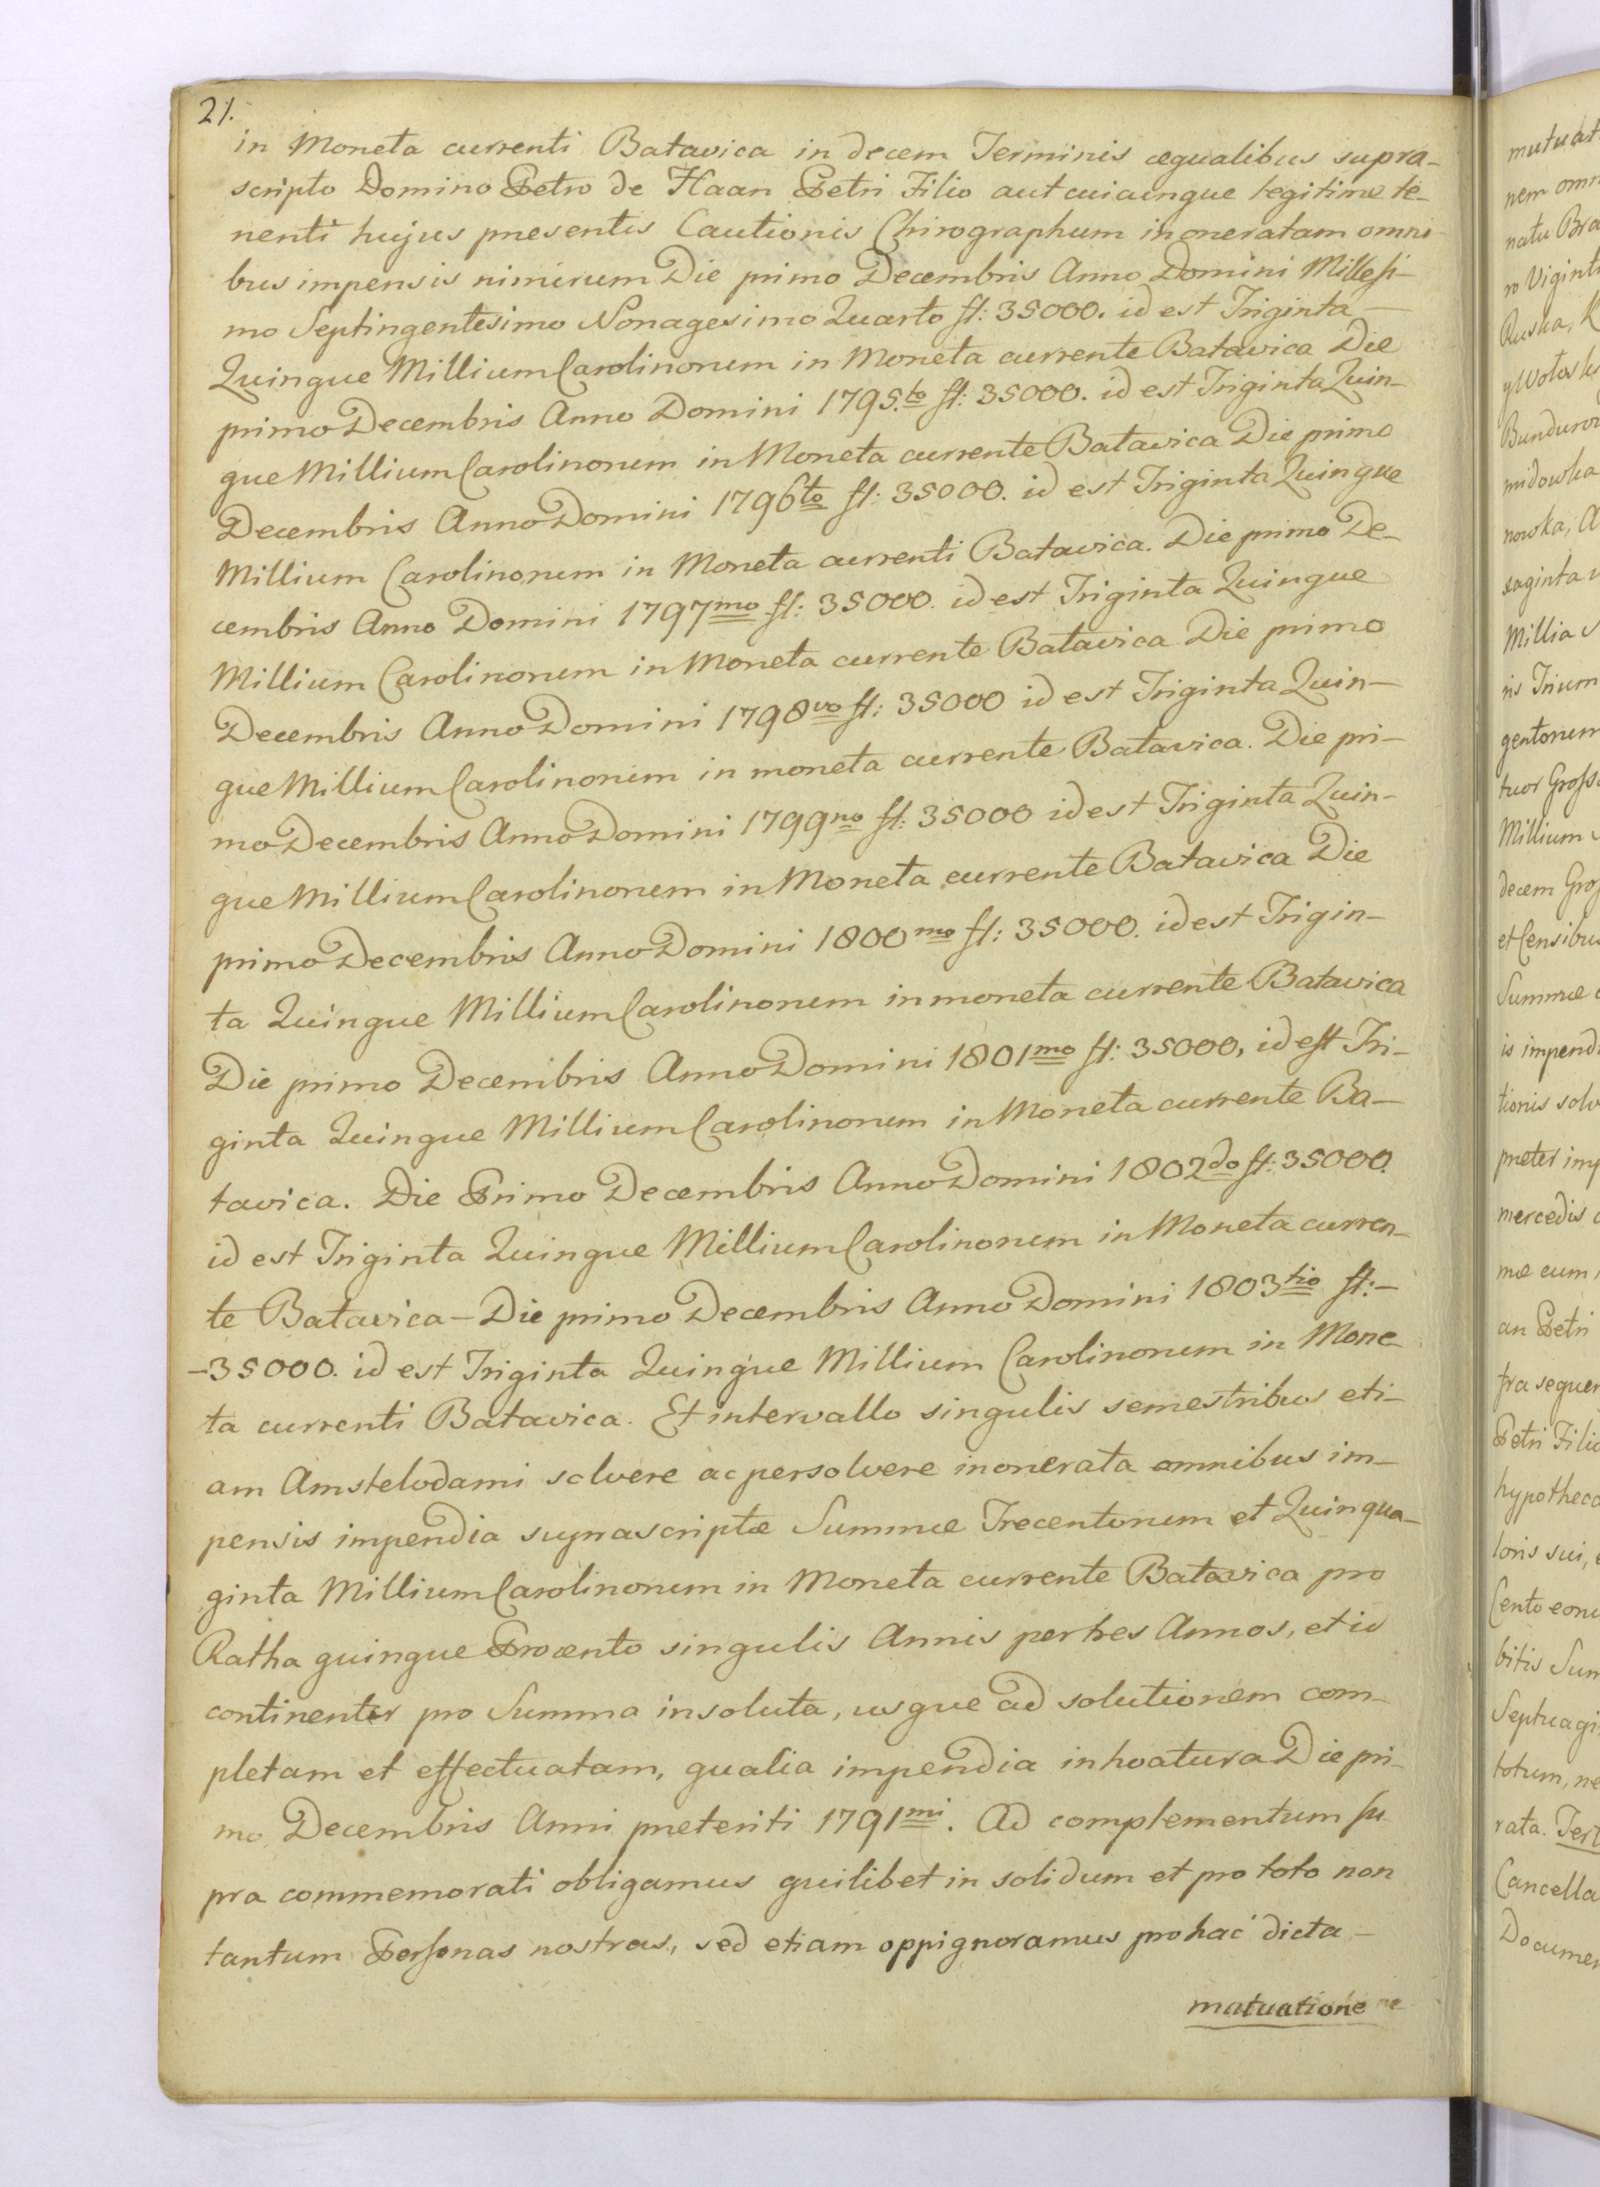 21.
in Moneta currenti Batavica in decem Terminis æqualibus supra-
scripto Domino Petro de Haan Petri Filio aut cuicunque legitime te-
nenti hujus presentis Cautionis Chirographum inoneratam omni-
bus impensis nimirum Die primo Decembris Anno Domini Millesi-
mo Septingentesimo Nonagesimo Quarto fl: 35000. id est Triginta —
Quinque Millium Carolinorum in Moneta currente Batavica Die
primo Decembris Anno Domini 1795.to fl: 35000. id est Triginta Quin-
que Millium Carolinorum in Moneta currente Batavica Die primo
Decembris Anno Domini 1796to fl: 35000. id est Triginta Quinque
Millium Carolinorum in Moneta currenti Batavica. Die primo De-
cembris Anno Domini 1797mo fl: 35000. id est Triginta Quinque
Millium Carolinorum in Moneta currente Batavica Die primo
Decembris Anno Domini 1798vo fl: 35000 id est Triginta Quin-
que Millium Carolinorum in moneta currente Batavica. Die pri-
mo Decembris Anno Domini 1799no fl: 35000 id est Triginta Quin-
que Millium Carolinorum in Moneta currente Batavica Die
primo Decembris Anno Domini 1800mo fl: 35000. id est Trigin-
ta Quinque Millium Carolinorum in moneta currente Batavica
Die primo Decembris Anno Domini 1801mo fl: 35000, id est Tri-
ginta Quinque Millium Carolinorum in Moneta currente Ba-
tavica. Die Primo Decembris Anno Domini 1802do fl: 35000.
id est Triginta Quinque Millium Carolinorum in Moneta curren-
te Batavica - Die primo Decembris Anno Domini 1803tio fl: -
-35000. id est Triginta Quinque Millium Carolinorum in Mone
ta currenti Batavica. Et intervallo singulis semestribus eti-
am Amstelodami solvere ac persolvere inonerata omnibus im-
pensis impendia suprascriptæ Summæ Trecentorum et Quinqua-
ginta Millium Carolinorum in Moneta currente Batavica pro
Ratha quinque Procento singulis Annis per tres Annos, et id
continenter pro Summa insoluta, usque ad solutionem com-
pletam et effectuatam, qualia impendia inhoatura Die pri-
mo Decembris Anni preteriti 1791mi. Ad complementum su
pra commemorati obligamus quilibet in solidum et pro toto non
tantum Personas nostras, sed etiam oppignoramus pro hac dicta -
mutuatione
mutuat
nem omn
natu Bra
ro Viginti
Ruska, K
y Wolosk
midowka
nowka, A
Millia
ris Trium
gentorum
tuor Gross
Millium
decem Gros
et Censibus
Summæ
is impend
tionis solv
preter imp
mercedis
mæ cum
an Petri
fra sequen
Petri Filio
hypotheca
loris sui,
Cento
bitis Sum
Septuagi
totum, ne
rata. Tert
Cancella
Documen